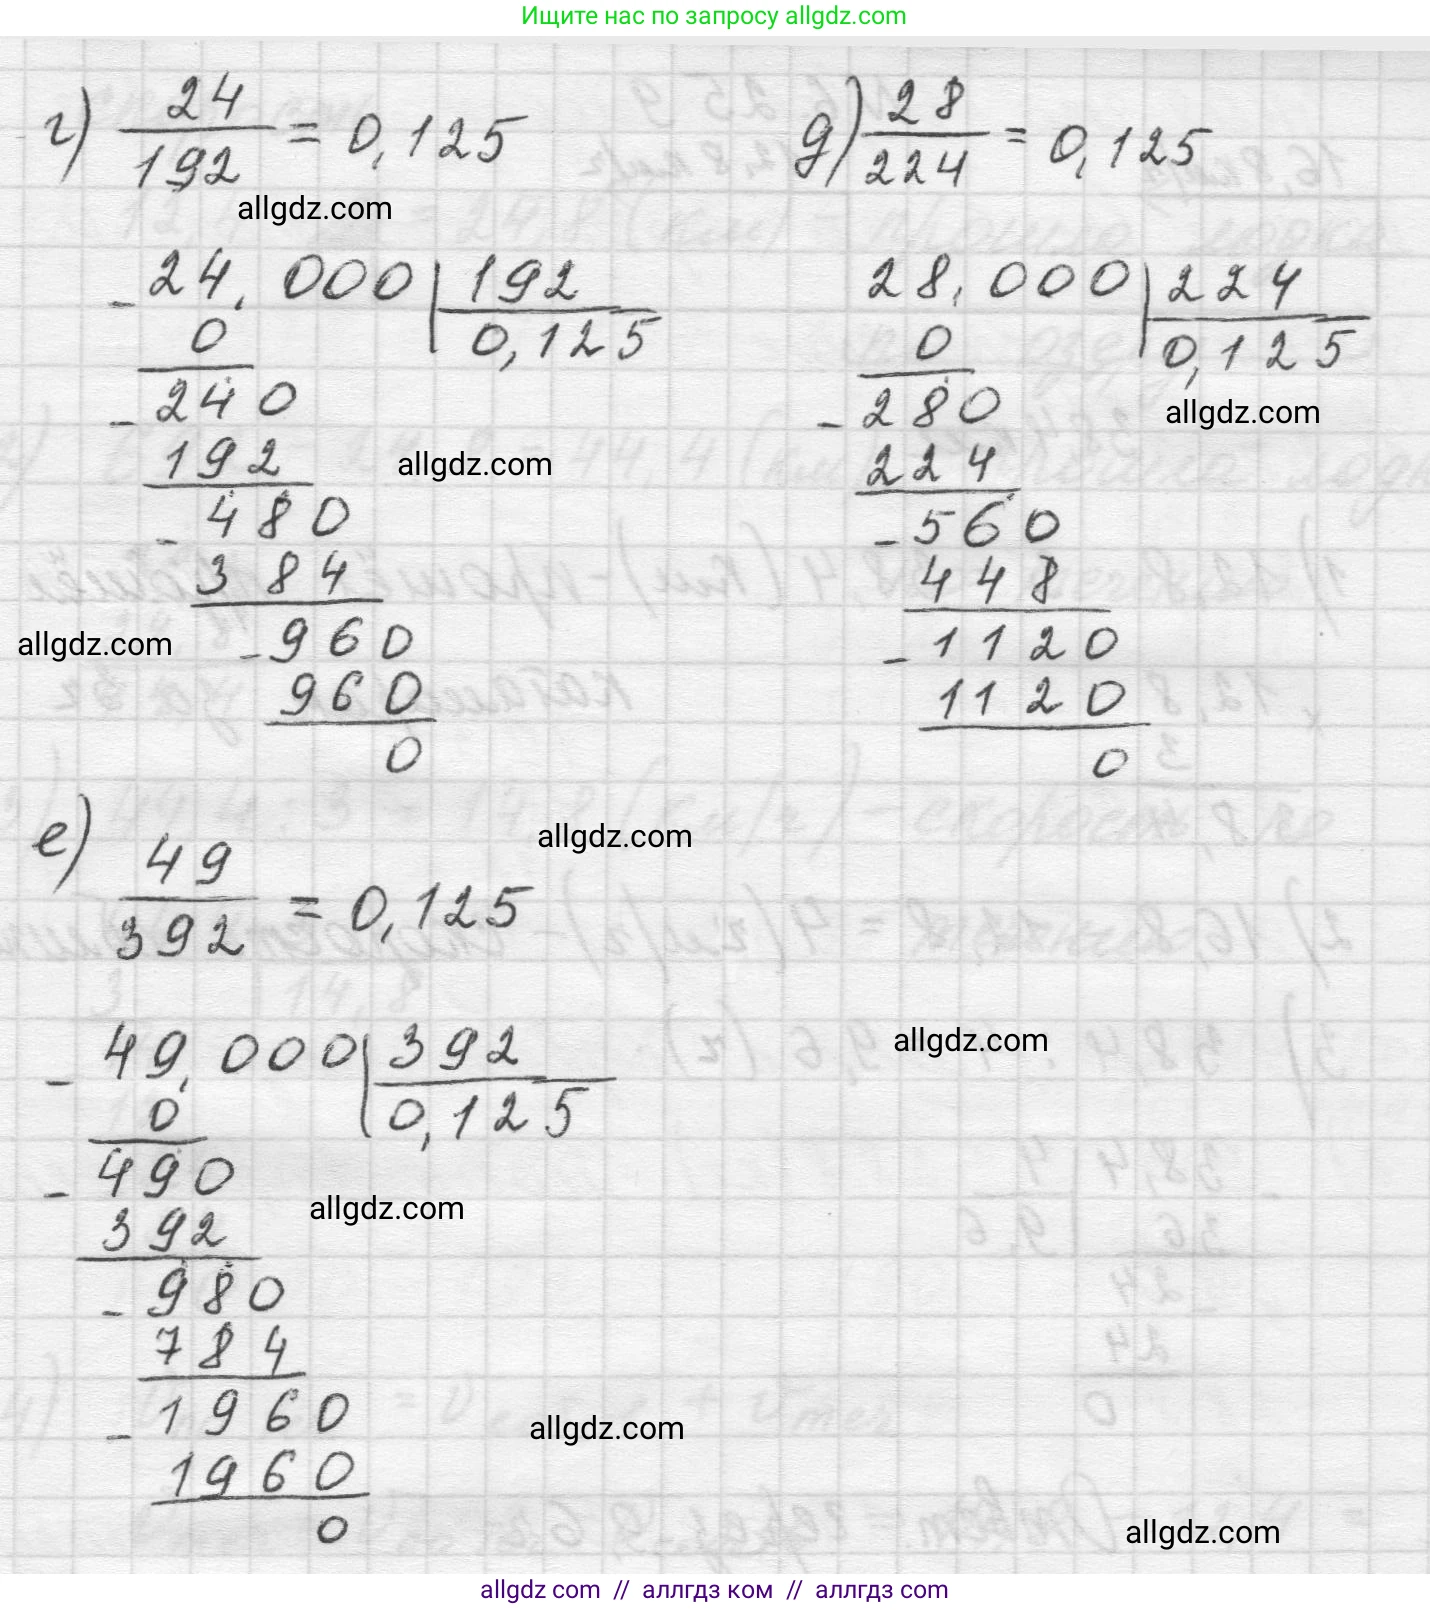 Ищите нас по запросу allgdz.com
г) 24/192 = 0,125
allgdz.com
24,000 | 192
0 | 0,125
- 240
192
- 480
384
- 960
960
0
allgdz.com
allgdz.com
д) 28/224 = 0,125
28,000 | 224
0 | 0,125
- 280
224
- 560
448
- 1120
1120
0
allgdz.com
е) 49/392 = 0,125
allgdz.com
- 49,000 | 392
0 | 0,125
- 490
392
- 980
784
- 1960
1960
0
allgdz.com
allgdz.com
allgdz.com
allgdz.com
allgdz.com // аллгдз ком // аллгдз com